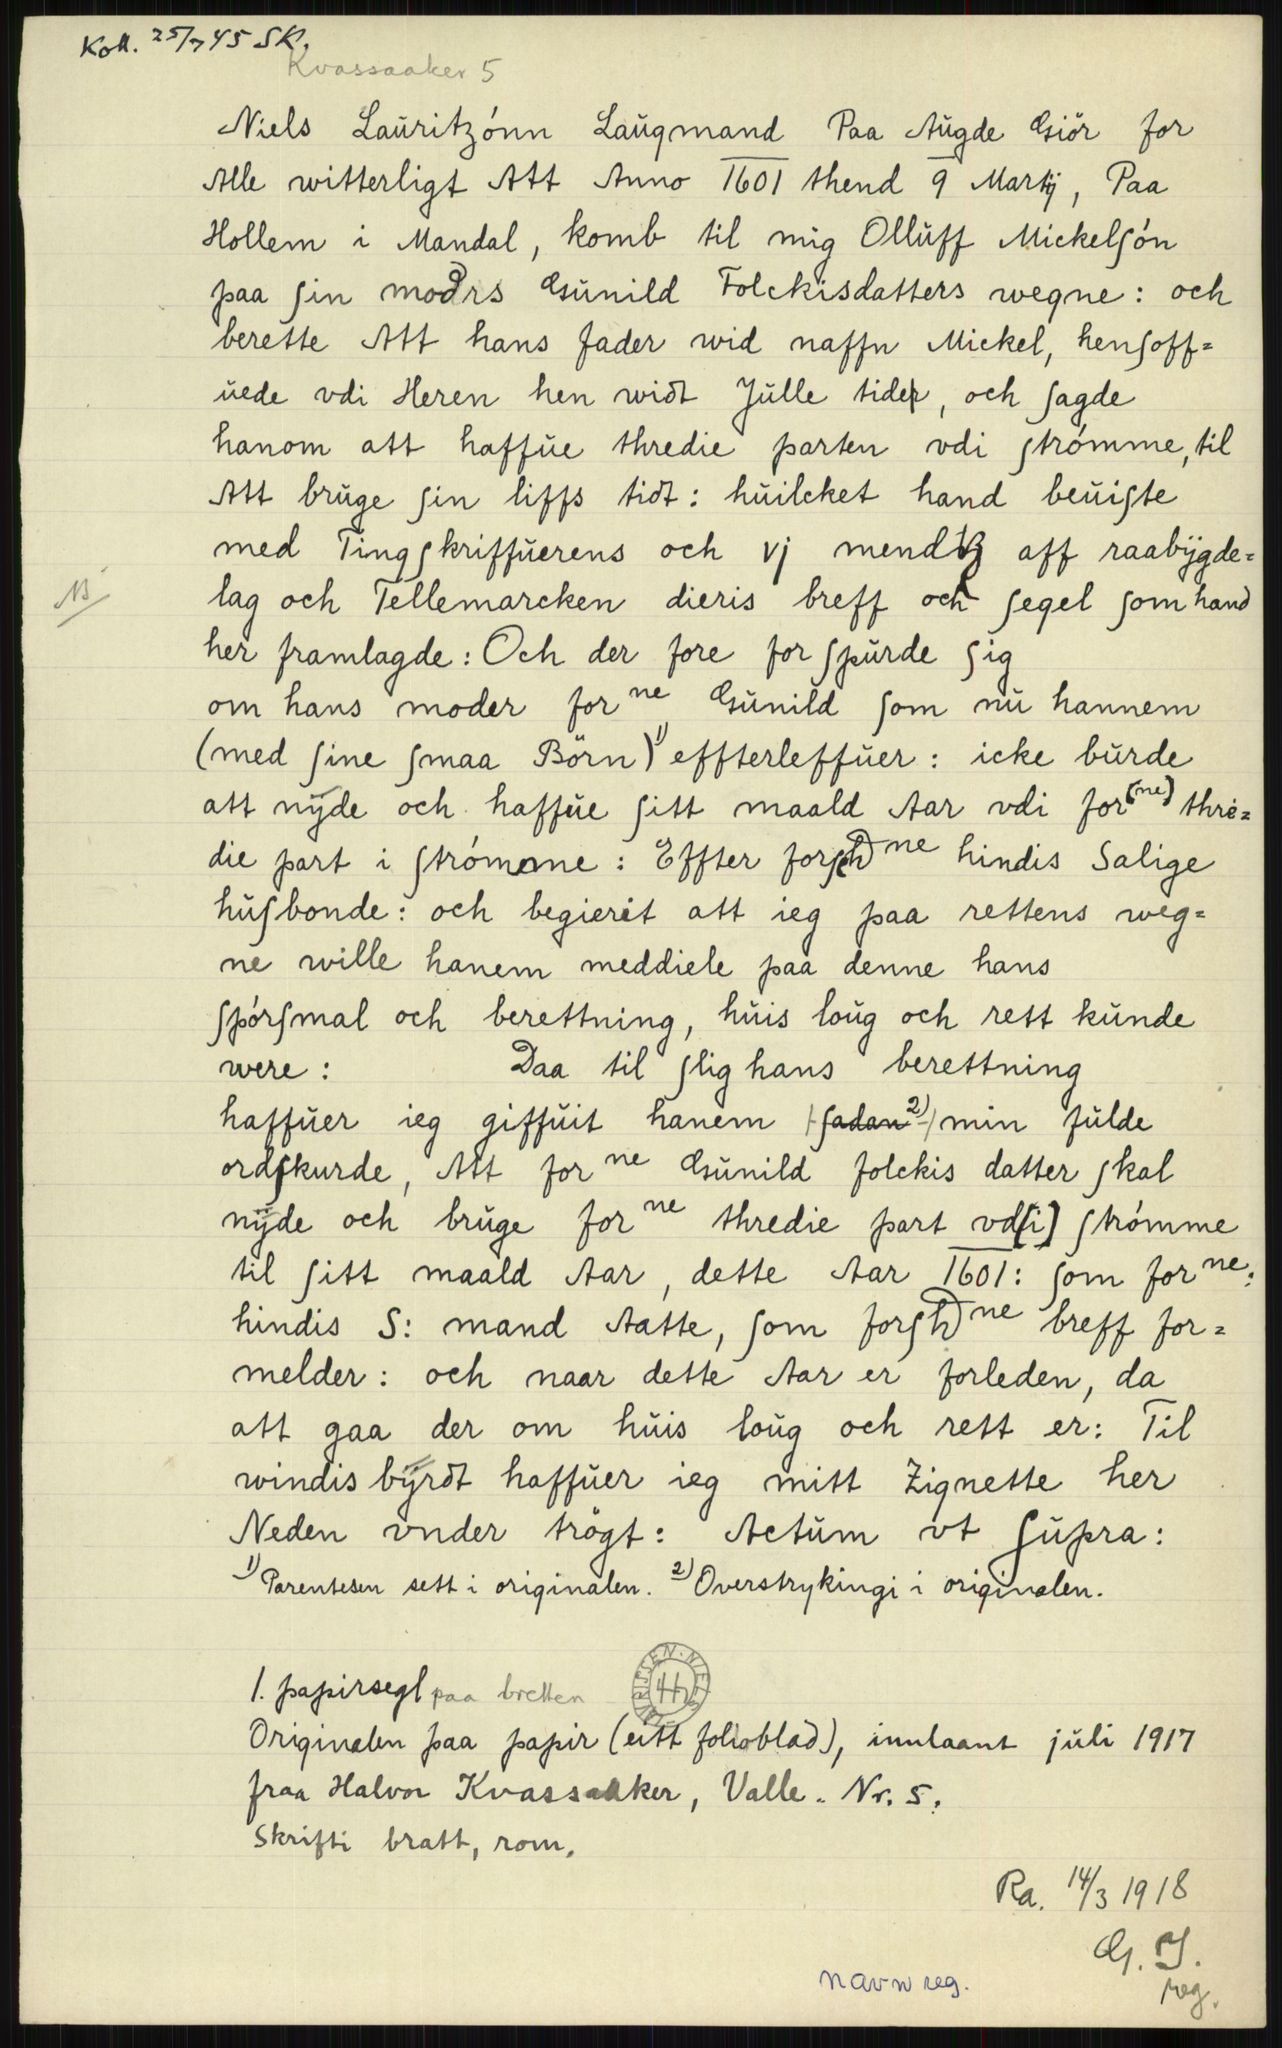 Koll. 25/7 45 SK.
Kvassaaker 5
Niels Lauritzónn Laugmand Paa Augde Giör for
Alle witterligt Att Anno 1601 thend 9 Martij, Paa
Hollem i Mandal, komb til mig Olluff Mickelſón
paa ſin modrs Gunild Folckisdatters wegne: och
berette Att hans fader wid naffn Mickel, henſoff=
uede vdi Heren hen widt Julle tider, och ſagde
hanom att haffue thredie parten vdi ſtrómme, til
Att bruge ſin liffs tidt: huilcket hand beuiſte
med Tingſkriffuerens och vj mendtz aff raabÿgde=
NB
lag och Tellemarcken dieris breff och ſegel ſom hand
her framlagde: Och der fore for ſpurde ſig
om hans moder for ne Gunild ſom nu hannem
(med ſine ſmaa Börn) 1) effterleffuer: icke burde
att nÿde och haffue ſitt maald Aar vdi for (ne) thre=
die part i ſtrómme: Effter forſch ne hindis Salige
huſbonde: och begierit att ieg paa rettens weg=
ne wille hanem meddiele paa denne hans
ſpórſmal och berettning, huis loug och rett kunde
were: Daa til ſlig hans berettning
haffuer ieg giffuit hanem /ſadan 2)/ min fulde
ordſkurde, Att for ne Gunild folckis datter ſkal
nÿde och bruge for ne thredie part vd[i] ſtrómme
til ſitt maald Aar, dette Aar 1601: ſom for ne:
hindis S: mand Aatte, ſom forſch ne breff for=
melder: och naar dette Aar er forleden, da
att gaa der om huis loug och rett er: Til
windisbÿrdt haffuer ieg mitt Zignette her
Neden vnder trögt: Actum vt ſupra:
1) Parentesen sett i originalen. 2) Overstrykingi i originalen.
1. papirsegl paa bretten
Originalen paa papir (eitt folioblad), innlaant juli 1917
fraa Halvor Kvassaaker, Valle. Nr. 5.
Skrifti bratt, rom.
Ra. 14/3 1918
navnreg.
reg.